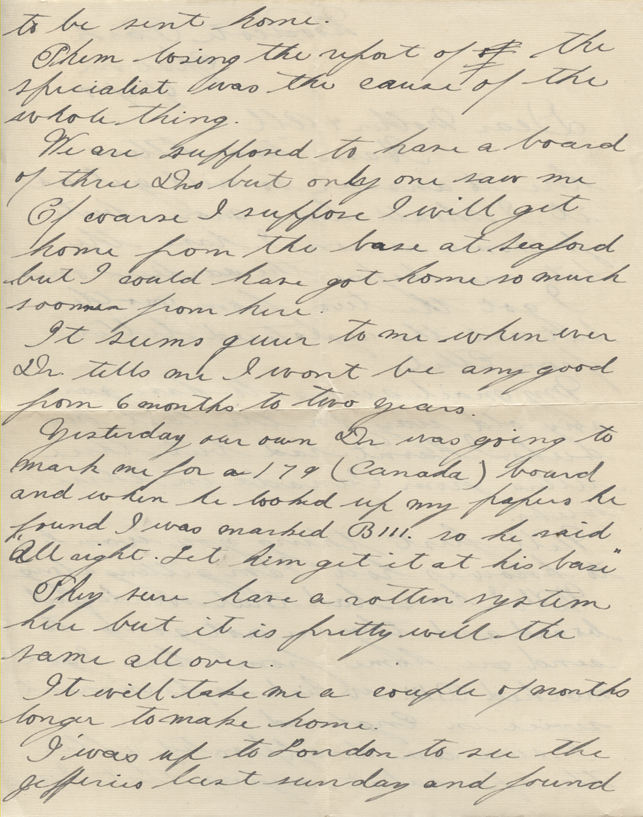 to be sent home.
Them losing the report of of the
specialist was the cause of the
whole thing.
We are supposed to have a board
of three Drs but only one saw me
Of coarse I suppose I will get
home from the base at Seaford
but I could have got home so much
sooner from here.
It seems queer to me when ever
Dr. tells me I wont be any good
from 6 months to two years.
Yesterday our own Dr was going to
mark me for a 179 (Canada) board
and when he looked up my papers he
found I was marked B111. so he said
"All right. Let him get it at his base"
They sure have a rotten system
here but it is pretty well the
same all over.
It will take me a couple of months
longer to make home.
I was up to London to see the
Jefferies last sunday and found